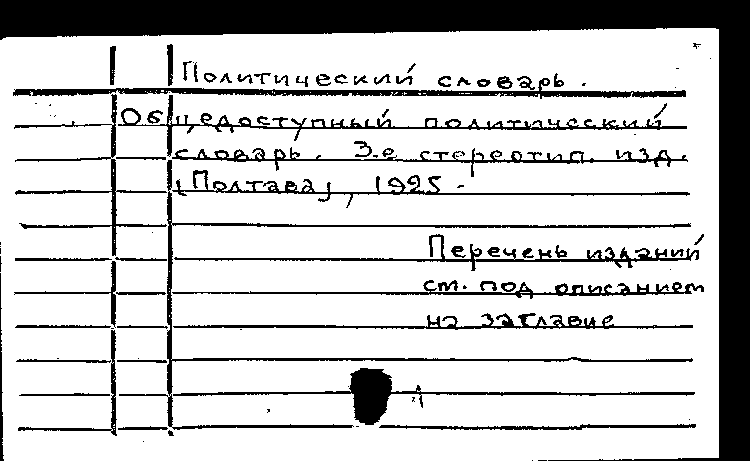 Политический словарь.
Общедоступный политический
словарь. 3-е стереотип. изд.
[Полтава], 1925.
Перечень изданий
см. под описанием
на заглавие